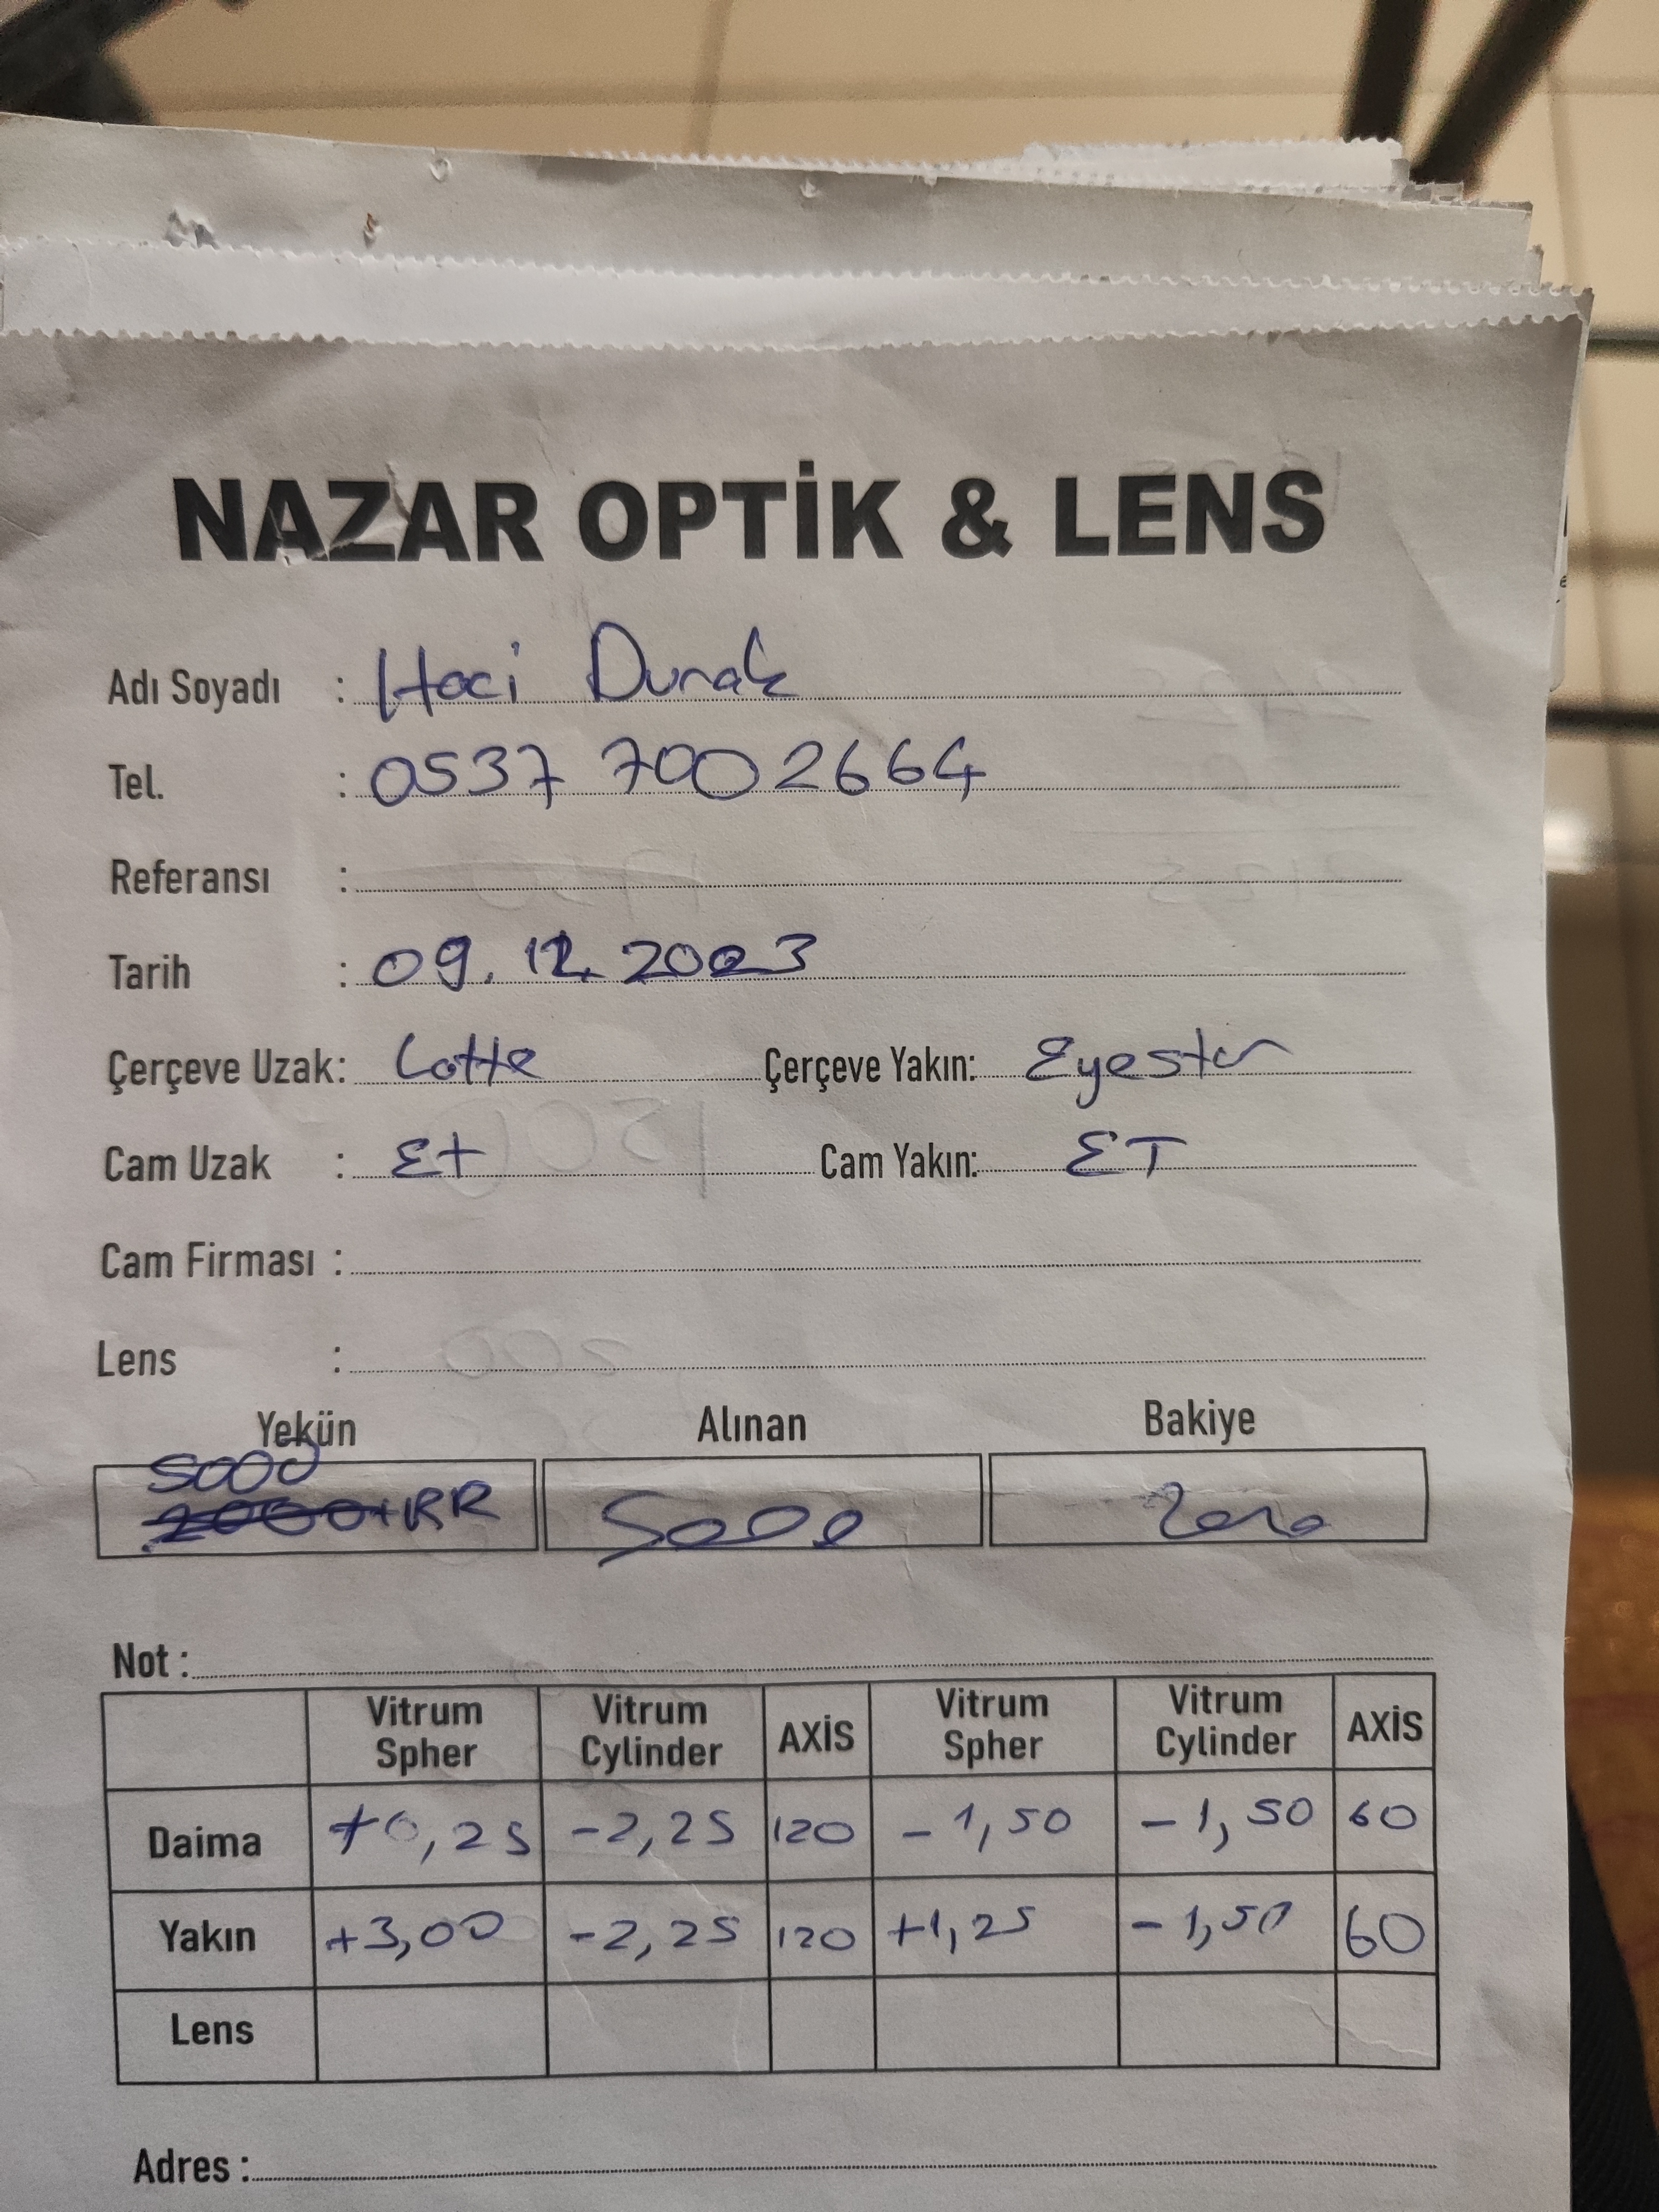 NAZAR OPTİK & LENS
Adı Soyadı : Haci Durak
Tel. : 0537 700 2664
Referansı :
Tarih : 09.12.2023
Çerçeve Uzak: Lotte Çerçeve Yakın: Eyestar
Cam Uzak : Et Cam Yakın: ET
Cam Firması :
Lens :
Yekün Alınan Bakiye
5000
2000+RR 5000
Not :
Vitrum Spher Vitrum Cylinder AXİS Vitrum Spher Vitrum Cylinder AXİS
Daima +0,25 -2,25 120 -1,50 -1,50 60
Yakın +3,00 -2,25 120 +1,25 -1,50 60
Lens
Adres :